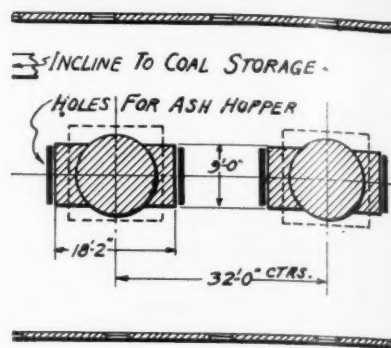 INCLINE TO COAL STORAGE.
HOLES FOR ASH HOPPER
9'-0"
18'-2"
32'-0" CTRS.